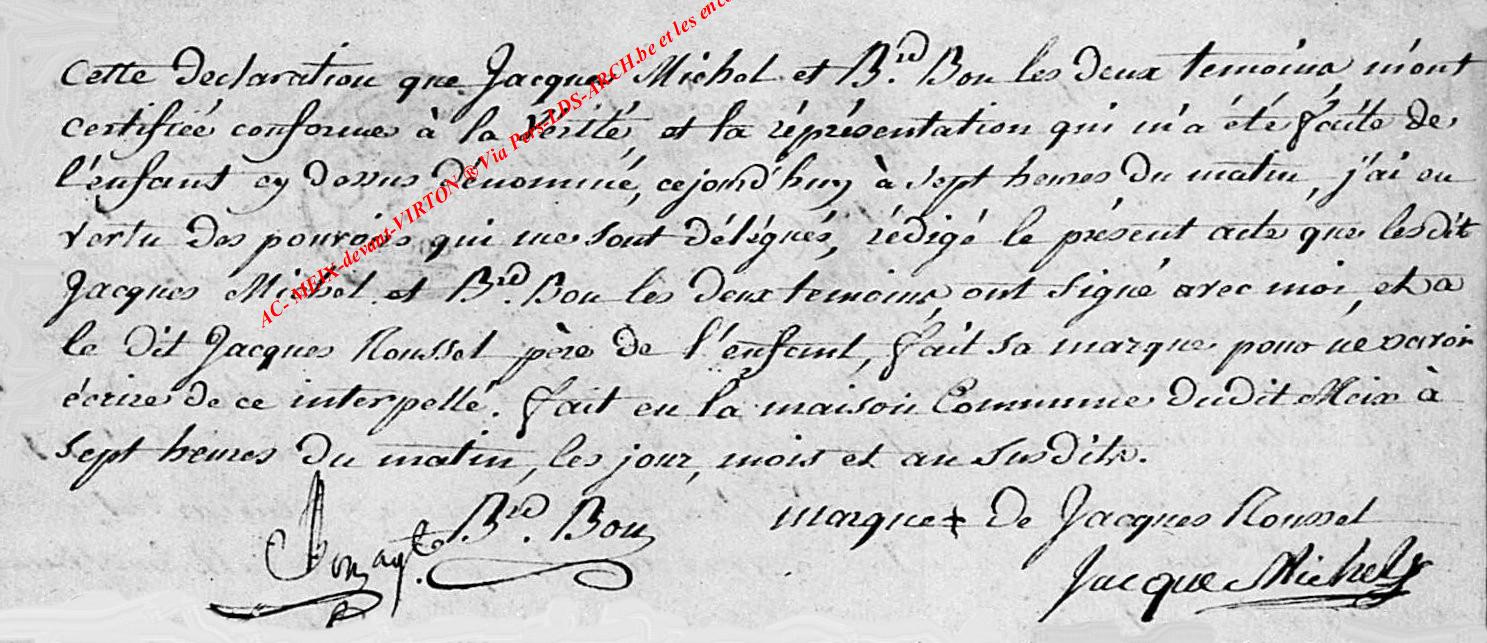 Cette declaration que Jacques Michel et B.rd Bon les deux temoins m'ont
certifiée conforme à la vérité, et la réprésentation qui m'a été faite de
l'enfant cy dessus dénommé, cejourd'huy à sept heures du matin, j'ai en
vertu des pouvoirs qui me sont délégués, rédigé le présent acte que lesdit
Jacques Michel et B.rd Bon les deux temoins ont signé avec moi, et a
le dit Jacques Rousset père de l'enfant, fait sa marque pour ne savoir
écrire de ce interpellé. fait en la maison Commune dudit Meix à
sept heures du matin, les jour, mois et an susdits.
B.rd Bon
marque + de Jacques Rousset
Jacque Michel
AC- MEIX-devant-VIRTON ® Via Pers-LDS-ARCH.be et les